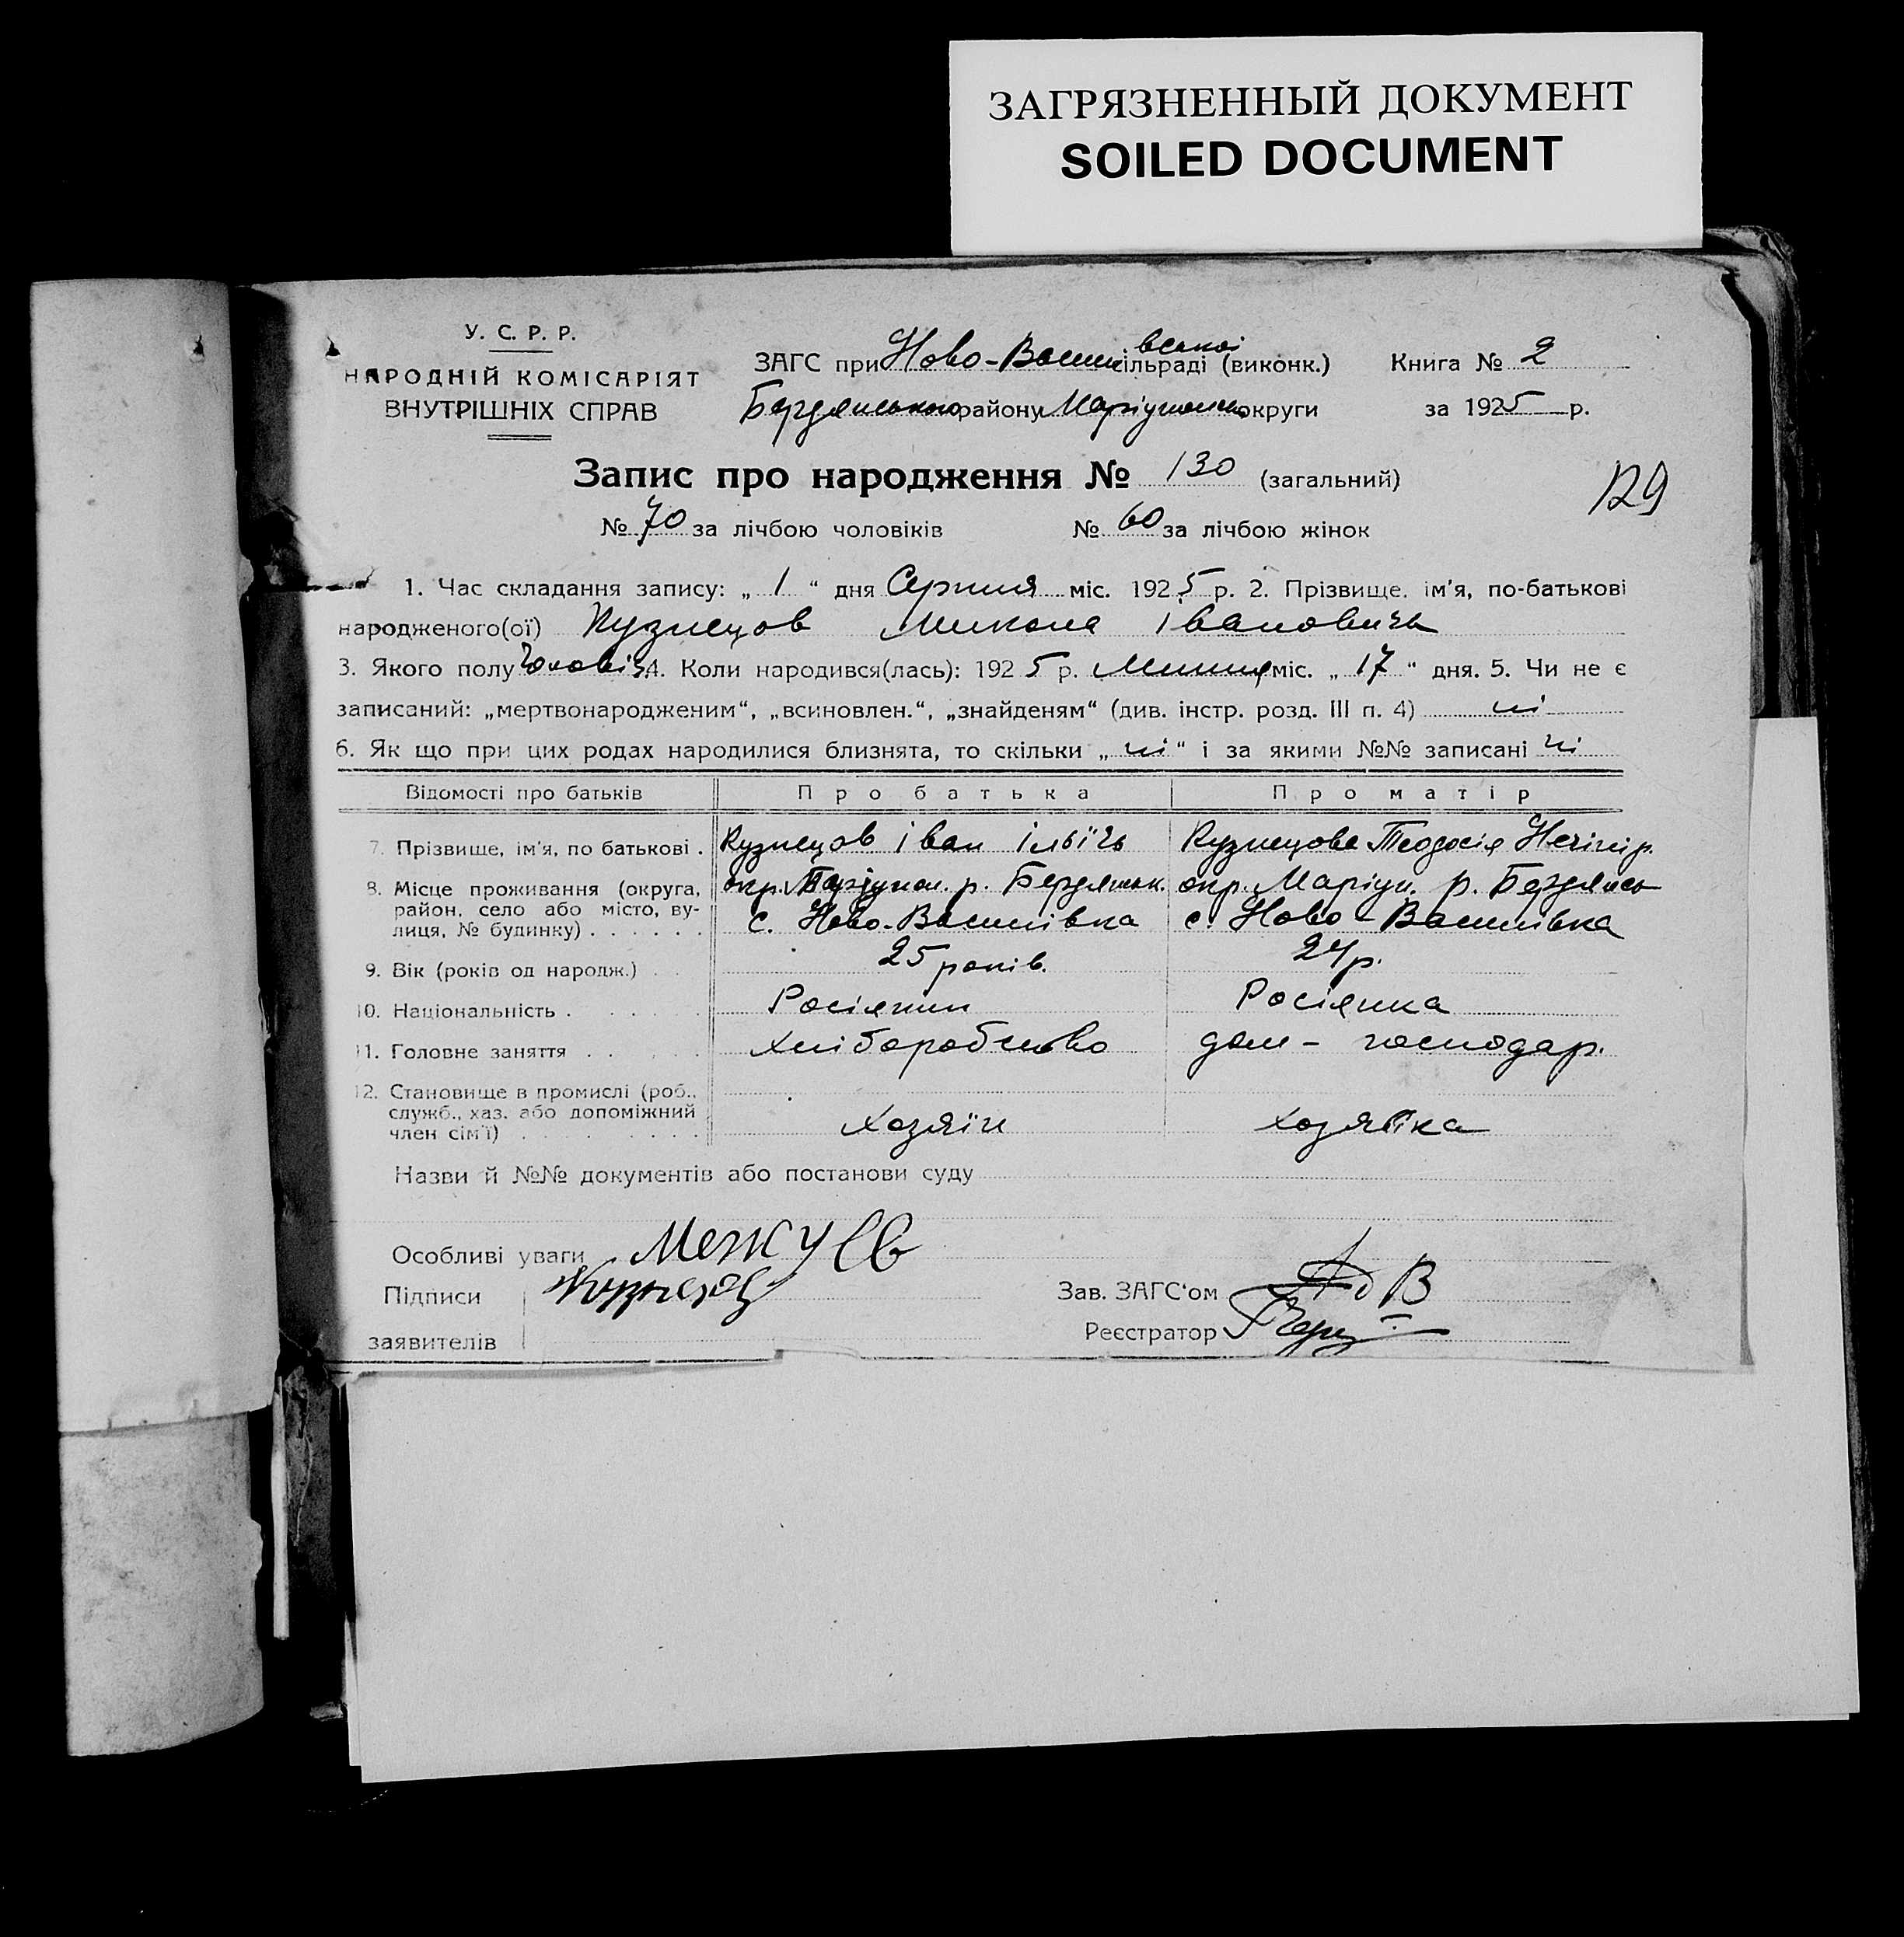 ЗАГРЯЗНЕННЫЙ ДОКУМЕНТ
SOILED DOCUMENT
У. С. Р. Р.
НАРОДНІЙ КОМІСАРІЯТ
ВНУТРІШНІХ СПРАВ
ЗАГС при Ново-Василівській сільраді (виконк.) Книга № 2
Бердянського району Маріупольськ округи за 1925 р.
Запис про народження № 130 (загальний)
129
№ 70 за лічбою чоловіків № 60 за лічбою жінок
1. Час складання запису: „ 1 “ дня Серпня міс. 1925 р. 2. Прізвище, ім'я, по-батькові
народженого(ої) Кузнецов Микола Івановичь
3. Якого полу Чоловіч 4. Коли народився(лась): 1925 р. Липця міс. „ 17 “ дня. 5. Чи не є
записаний: „мертвонародженим“, „всиновлен.“, „знайденям“ (див. інстр. розд. III п. 4) ні
6. Як що при цих родах народилися близнята, то скільки „ ні “ і за якими №№ записані ні
Відомості про батьків Про батька Про матір
7. Прізвище, ім'я, по батькові . Кузнецов Іван Ільїчь Кузнецова Теодосія Нечіпір.
8. Місце проживання (округа, район, село або місто, вулиця, № будинку) . . . . . . окр. Маріупол. р. Бердянськ. окр. Маріуп. р. Бердянсь
с. Ново-Василівка с. Ново-Василівка
9. Вік (років од народж.) . . 25 років. 24 р.
10. Національність . . . . . Росіянин Росіянка
11. Головне заняття . . . . . Хліборобство дом- господар.
12. Становище в промислі (роб., служб., хаз. або допоміжний член сім'ї) . . . . . . . . Хозяїн хозяїка
Назви й №№ документів або постанови суду
Особливі уваги Межуев
Підписи Кузнецов Зав. ЗАГС'ом
заявителів Реєстратор